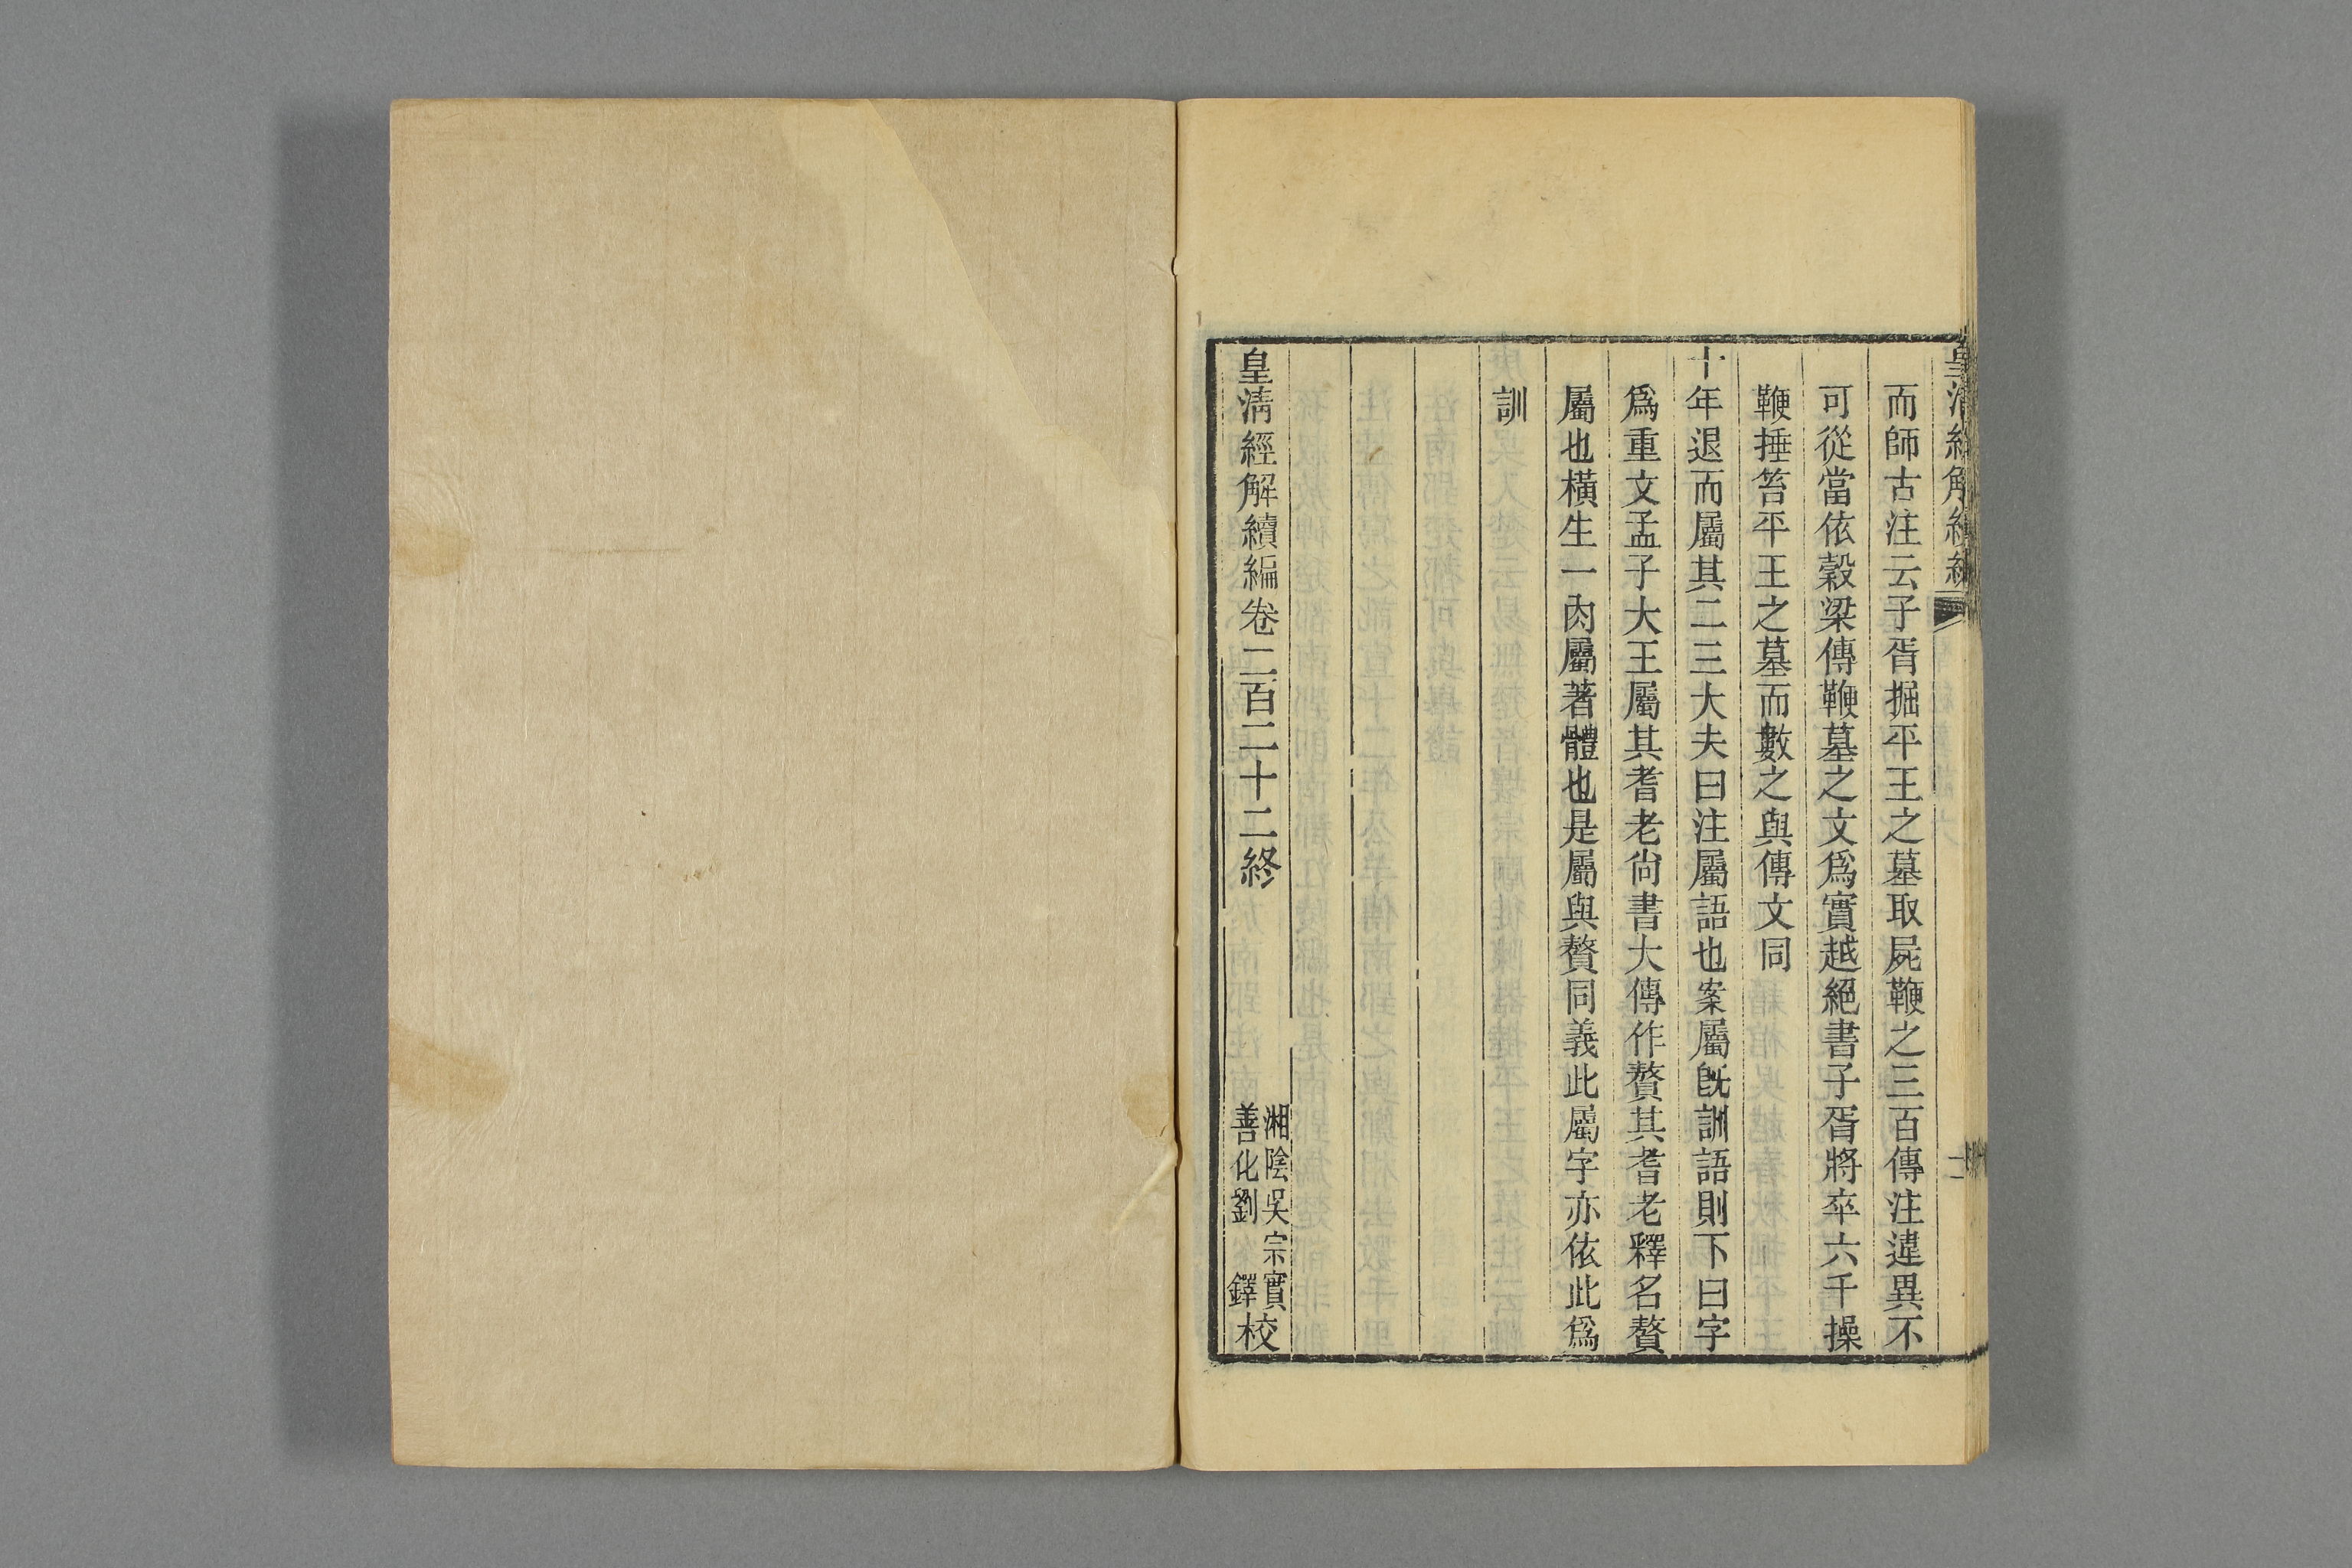 皇清經解續編
二
而師古注云子胥掘平王之墓取屍鞭之三百傳注違異不
可從當依穀梁傳鞭墓之文爲實越絕書子胥將卒六千操
鞭捶笞平王之墓而數之與傳文同
十年退而屬其二三大夫曰注屬語也案屬既訓語則下曰字
爲重文孟子大王屬其耆老尙書大傳作贅其耆老釋名贅
屬也橫生一肉屬著體也是屬與贅同義此屬字亦依此爲
訓
皇淸經解續編卷二百二十二終
湘陰吳宗實
善化劉鐸校